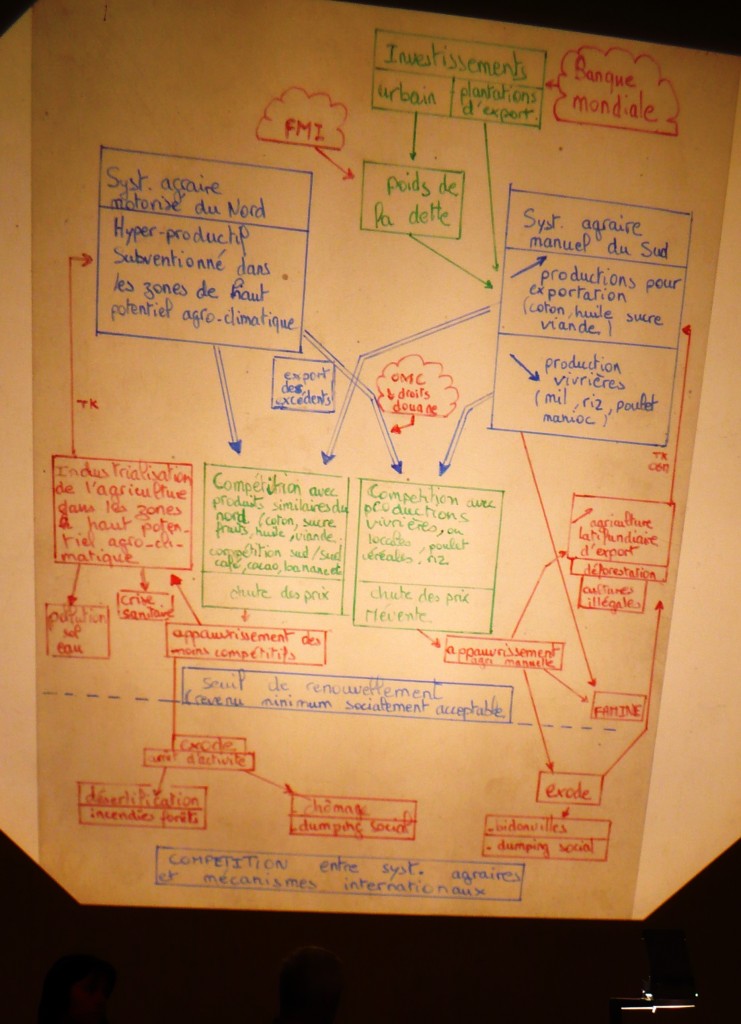 Investissements
urbain
plantations
d'export.
Banque
mondiale
FMI
poids de
la dette
Syst. agraire
motorisé du Nord
Hyper-productif
Subventionné dans
les zones de haut
potentiel agro-climatique
Syst. agraire
manuel du Sud
productions pour
exportation
(coton, huile sucre
viande)
production
vivrières
(mil, riz, poulet
manioc)
export
des
excédents
OMC
droits
douane
TK
TK
Industrialisation
de l'agriculture
dans les zones
à haut poten-
tiel agro-cli-
matique
Compétition avec
produits similaires du
nord (coton, sucre
fruits, huile, viande
compétition sud/sud
café, cacao, banane etc
chute des prix
Compétition avec
productions
vivrières, ou
locales, poulet
céréales, riz
chute des prix
Mévente
agriculture
latifundiaire
d'export
déforestation
cultures
illégales
pollution
sol
eau
crise
sanitaire
appauvrissement des
moins compétitifs
appauvrissement
agri manuelle
seuil de renouvellement
(revenu minimum socialement acceptable
FAMINE
exode
arrêt d'activité
désertification
incendies forêts
- chômage
- dumping social
exode
- bidonvilles
- dumping social
COMPETITION entre syst. agraires
et mécanismes internationaux